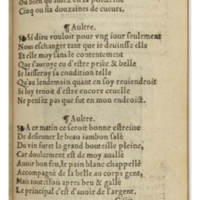 Ou bien qu'auez en sa
Cinq ou six douzaines de cueurs,
¶ Aultre.
Si dieu vouloit pour vng iour seulement
Nous eschanger tant que ie deuinsse elle
Et elle moy sans le contentement
Que s'auoye eu d'estre prisée & belle
Ie laisseroy sa condition telle
Qu'au lendemain quant en soy reuiendroit
Si luy tenoit d'estre encore cruelle
Ne pensez pas que fut en mon endroict.
¶ Aultre.
A ce matin ce seroit bonne estreine
De desieuner de beau iambon salé
Du vin furst la grand bouteille pleine,
Car doulcement est de moy auallé
Auoir bon feu, le pain blanc chappellé
Accompagné de la belle au corps gent,
Mais tout bien apres beu & gallé
Le principal c'est d'auoir de l'argent.